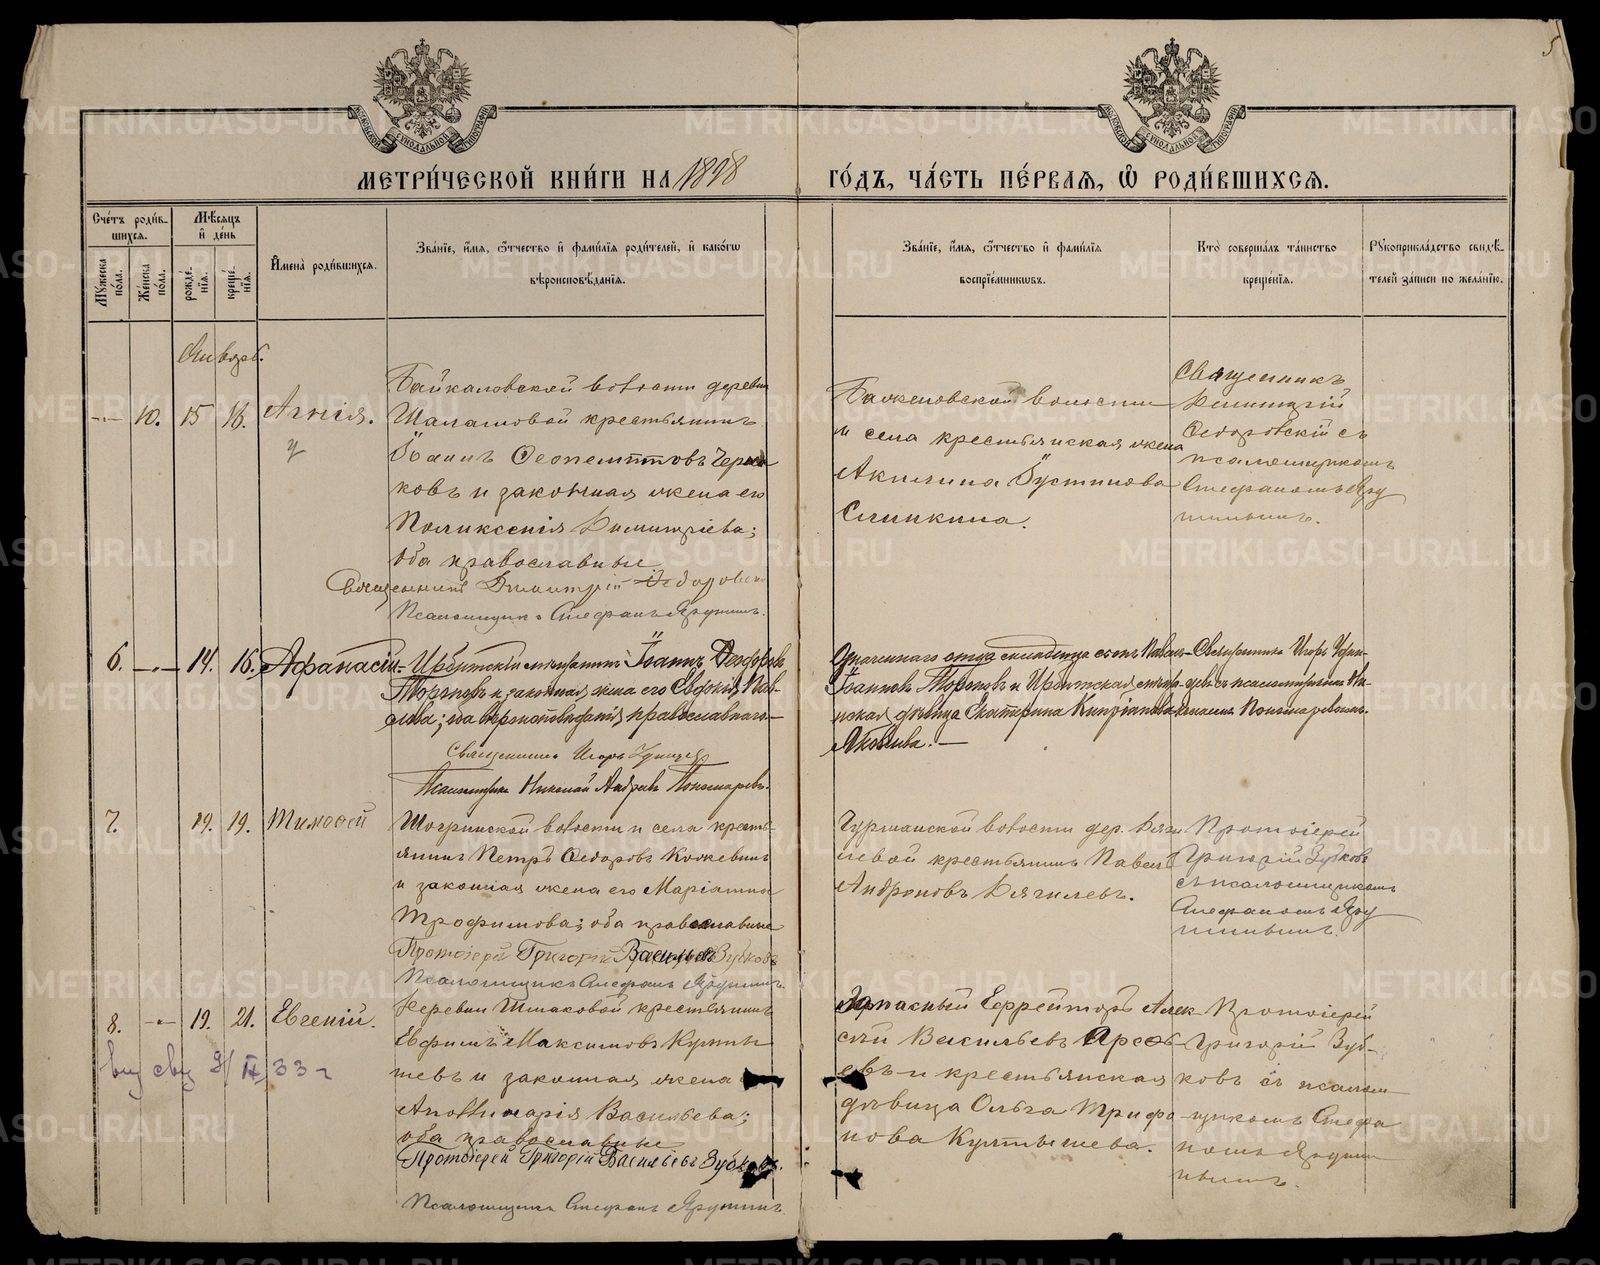 5
МЕТРИ́ЧЕСКОЙ КНИ́ГИ НА 1898 ГО́ДЪ, ЧА́СТЬ ПЕ́РВАѦ, Ѿ РОДИ́ВШИХСѦ.
Сче́тъ роди́в-
шихсѧ.
Мѣ́сѧцъ
и҆ де́нь
Мꙋ́жеска по́ла.
Же́нска по́ла.
рожде́нїѧ.
креще́нїѧ.
И҆мена̀ роди́вшихсѧ.
Зва́нїе, и҆́мѧ, ѻ҆́тчество и҆ фами́лїѧ роди́телей, и҆ како́гѡ
вѣроисповѣ́данїѧ.
Зва́нїе, и҆́мѧ, ѻ҆́тчество и҆ фами́лїѧ
воспрїе́мникѡвъ.
Кто̀ соверша́лъ та́инство
креще́нїѧ.
Рꙋкоприкла́дство свидѣ́-
телей за́писи по жела́нїю.
Январь.
10. 15 16. Агнія.
Байкаловской волости деревни
Шаламовой крестьянинъ
Іоаннъ Ѳеопемптовъ
ковъ и законная жена его
Поликсенія Димитріева;
оба православные
Священникъ Димитрій Ѳедоровскій
Псаломщикъ Стефанъ
Байкаловской волости
и села крестьянская жена
Акилина Іустинова
Слинкина.
Священникъ
Димитрій
Ѳедоровскій съ
псаломщикомъ
Стефаномъ
6. — 14. 16. Аѳанасій
Ирбитскій мещанинъ Іоаннъ Ѳеодоровъ
и законная жена его Евдокія Пав-
лова; оба вероисповѣданія православнаго.—
Священникъ Игорь
Псаломщикъ Николай Андреевъ Пономаревъ.
Означеннаго отца сынъ Павелъ
Іоанновъ и Ирбитская мещан-
ская дѣвица Екатерина Кипріанова
Яковлева.—
Священникъ Игорь
съ псаломщикомъ Ни-
колаемъ Пономаревымъ.
7. 19. 19. Тимоѳей
Шогринской волости и села кресть-
янинъ Петръ Ѳедоровъ Кожевинъ
и законная жена его Маріамна
Трофимова; оба православные
Протоіерей Григорій Васильевъ Зубковъ
Псаломщикъ Стефанъ
волости дер.
левой крестьянинъ Павелъ
Андроновъ
Протоіерей
Григорій Зубковъ
съ псаломщикомъ
Стефаномъ
8. — 19. 21. Евгеній.
Деревни Шмаковой крестьянинъ
Евфимъ Максимовъ
шевъ и законная жена
Аполлинарія Васильева;
оба православные
Протоіерей Григорій Васильевъ Зубковъ.
Псаломщикъ Стефанъ
Запасный Ефрейторъ Алек-
сѣй Васильевъ
евъ и крестьянская
дѣвица Ольга Трифо-
нова Култышева.
Протоіерей
Григорій Зуб-
ковъ съ псалом-
щикомъ Стефа-
номъ
33 г
METRIKI.GASO-URAL.RU